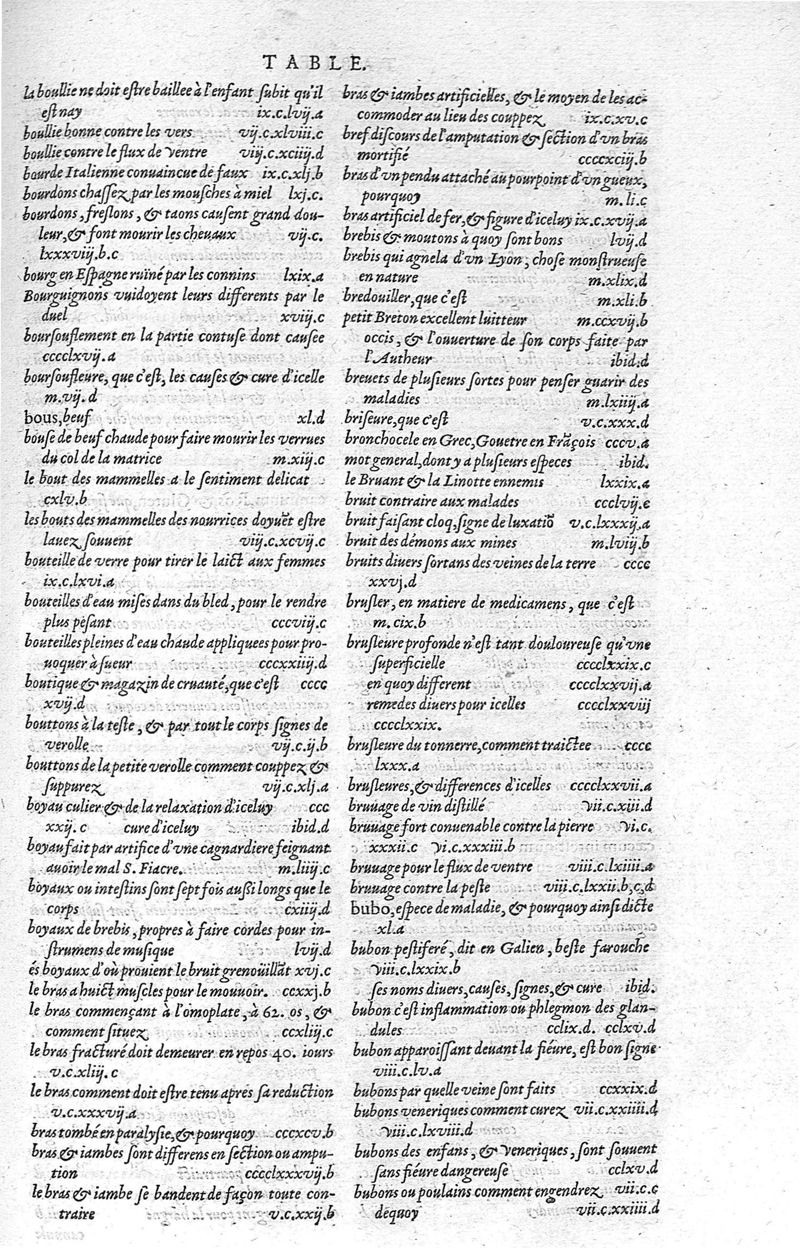 TABLE.
la boullie ne doit estre baillee à l'enfant subit qu'il
est nay ix.c.lvij.a
boullie bonne contre les vers vij.c.xlviij.c
boullie contre le flux de ventre viij.c.xciij.d
bourde Italienne conuaincue de faux ix.c.xlj.b
bourdons chassez par les mousches à miel lxj.c.
bourdons, freslons, & taons causent grand dou-
leur, & font mourir les cheuaux vij.c.
lxxxviij.b.c
bourg en Espagne ruïné par les connins lxix.a
Bourguignons vuidoyent leurs differents par le
duel xviij.c
boursouflement en la partie contuse dont causee
cccclxvij.a
boursoufleure, que c'est, les causes & cure d'icelle
m.vij.d
bous, beuf xl.d
bouse de beuf chaude pour faire mourir les verrues
du col de la matrice m.xiij.c
le bout des mammelles a le sentiment delicat
cxlv.b
les bouts des mammelles des nourrices doyuēt estre
lauez souuent viij.c.xcvij.c
bouteille de verre pour tirer le laict aux femmes
ix.c.lxvi.a
bouteilles d'eau mises dans du bled, pour le rendre
plus pesant cccviij.c
bouteilles pleines d'eau chaude appliquees pour pro-
uoquer à sueur cccxxiij.d
boutique & magazin de cruauté, que c'est cccc
xvij.d
bouttons à la teste, & par tout le corps signes de
verolle vij.c.ij.b
bouttons de la petite verolle comment couppez &
suppurez vij.c.xlj.a
boyau culier & de la relaxation d'iceluy ccc
xxij.c cure d'iceluy ibid.d
boyau fait par artifice d'vne cagnardiere feignant
auoir le mal S. Fiacre. m.liij.c
boyaux ou intestins sont sept fois aussi longs que le
corps cxiij.d
boyaux de brebis, propres à faire cordes pour in-
strumens de musique lvij.d
és boyaux d'où prouient le bruit grenouillāt xvj.c
le bras a huict muscles pour le mouuoir. ccxxj.b
le bras commençant à l'omoplate, à 62. os, &
comment situez ccxliij.c
le bras fracturé doit demeurer en repos 40. iours
v.c.xliij.c
le bras comment doit estre tenu apres sa reduction
v.c.xxxvij.a
bras tombé en paralysie, & pourquoy cccxcv.b
bras & iambes sont differens en section ou ampu-
tion cccclxxxvij.b
le bras & iambe se bandent de façon toute con-
traire v.c.xxij.b
bras & iambes artificielles, & le moyen de les ac-
commoder au lieu des couppez ix.c.xv.c
bref discours de l'amputation & section d'vn bras
mortifié ccccxcij.b
bras d'vn pendu attaché au pourpoint d'vn gueux,
pourquoy m.li.c
bras artificiel de fer, & figure d'iceluy ix.c.xvij.a
brebis & moutons à quoy sont bons lvij.d
brebis qui agnela d'vn Lyon, chose monstrueuse
en nature m.xlix.d
bredouiller, que c'est m.xli.b
petit Breton excellent luitteur m.ccxvij.b
occis, & l'ouuerture de son corps faite par
l'Autheur ibid.d
breuets de plusieurs sortes pour penser guarir des
maladies m.lxiiij.a
briseure, que c'est v.c.xxx.d
bronchocele en Grec, Gouetre en Frāçois cccv.a
mot general, dont y a plusieurs especes ibid.
le Bruant & la Linotte ennemis lxxix.a
bruit contraire aux malades ccclvij.c
bruit faisant cloq, signe de luxatiō v.c.lxxxij.a
bruit des démons aux mines m.lviij.b
bruits diuers sortans des veines de la terre cccc
xxvj.d
brusler, en matiere de medicamens, que c'est
m.cix.b
brusleure profonde n'est tant douloureuse qu'vne
superficielle cccclxxix.c
en quoy different cccclxxvij.a
remedes diuers pour icelles cccclxxviij
cccclxxix.
brusleure du tonnerre, comment traictee cccc
lxxx.a
brusleures, & differences d'icelles cccclxxvii.a
bruuage de vin distillé vii.c.xiii.d
bruuage fort conuenable contre la pierre vi.c.
xxxii.c vi.c.xxxiii.b
bruuage pour le flux de ventre viii.c.lxiiii.a
bruuage contre la peste viii.c.lxxii.b,c,d
bubo, espece de maladie, & pourquoy ainsi dicte
xl.a
bubon pestiferé, dit en Galien, beste farouche
viii.c.lxxix.b
ses noms diuers, causes, signes, & cure ibid.
bubon c'est inflammation ou phlegmon des glan-
dules cclix.d. cclxv.d
bubon apparoissant deuant la fiéure, est bon signe
viii.c.lv.a
bubons par quelle veine sont faits ccxxix.d
bubons veneriques comment curez vii.c.xxiiii.d
viii.c.lxviii.d
bubons des enfans, & veneriques, sont souuent
sans fiéure dangereuse cclxv.d
bubons ou poulains comment engendrez vii.c.c
dequoy vii.c.xxiiii.d